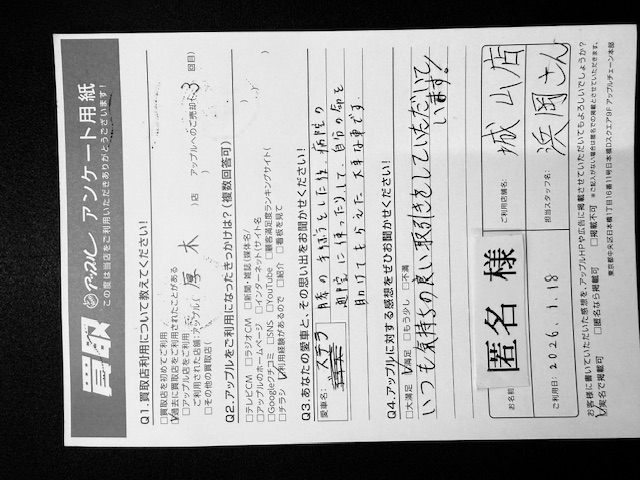 買取 アップル アンケート用紙
この度は当店をご利用いただきありがとうございます!
Q1.買取店利用について教えてください!
□買取店を初めてご利用
☑過去に買取店をご利用されたことがある
□アップル店をご利用
ご利用された店舗:アップル( 厚木 )店 アップルへのご売却( 3 回目)
□その他の買取店( )
Q2.アップルをご利用になったきっかけは?(複数回答可)
□テレビCM □ラジオCM □新聞・雑誌(媒体名/ )
□アップルのホームページ □インターネット(サイト名 )
□Googleクチコミ □SNS □YouTube □顧客満足度ランキングサイト(
□チラシ ☑利用経験があるので □紹介 □看板を見て
Q3.あなたの愛車と、その思い出をお聞かせください!
愛車名: ステラ
膝の手術をした後、病院の
通院に使ったりして、自分の命を
助けてもらえた大事な車です。
Q4.アップルに対する感想をぜひお聞かせください!
□大満足 ☑満足 □もう少し □不満
いつも気持ちの良い取引きをしていただいて
います!
お名前 匿名 様
ご利用店舗名: 城山店
ご利用日: 2026.1.18
担当スタッフ名: 浜岡さん
お客様に書いていただいた感想を、アップルHPや広告に掲載させていただいてもよろしいでしょうか?
☑実名で掲載可 □匿名なら掲載可 □掲載不可 ※ご記入がない場合は匿名での掲載とさせていただきます。
東京都中央区日本橋1丁目16番11号日本橋Dスクエア9F アップルチェーン本部